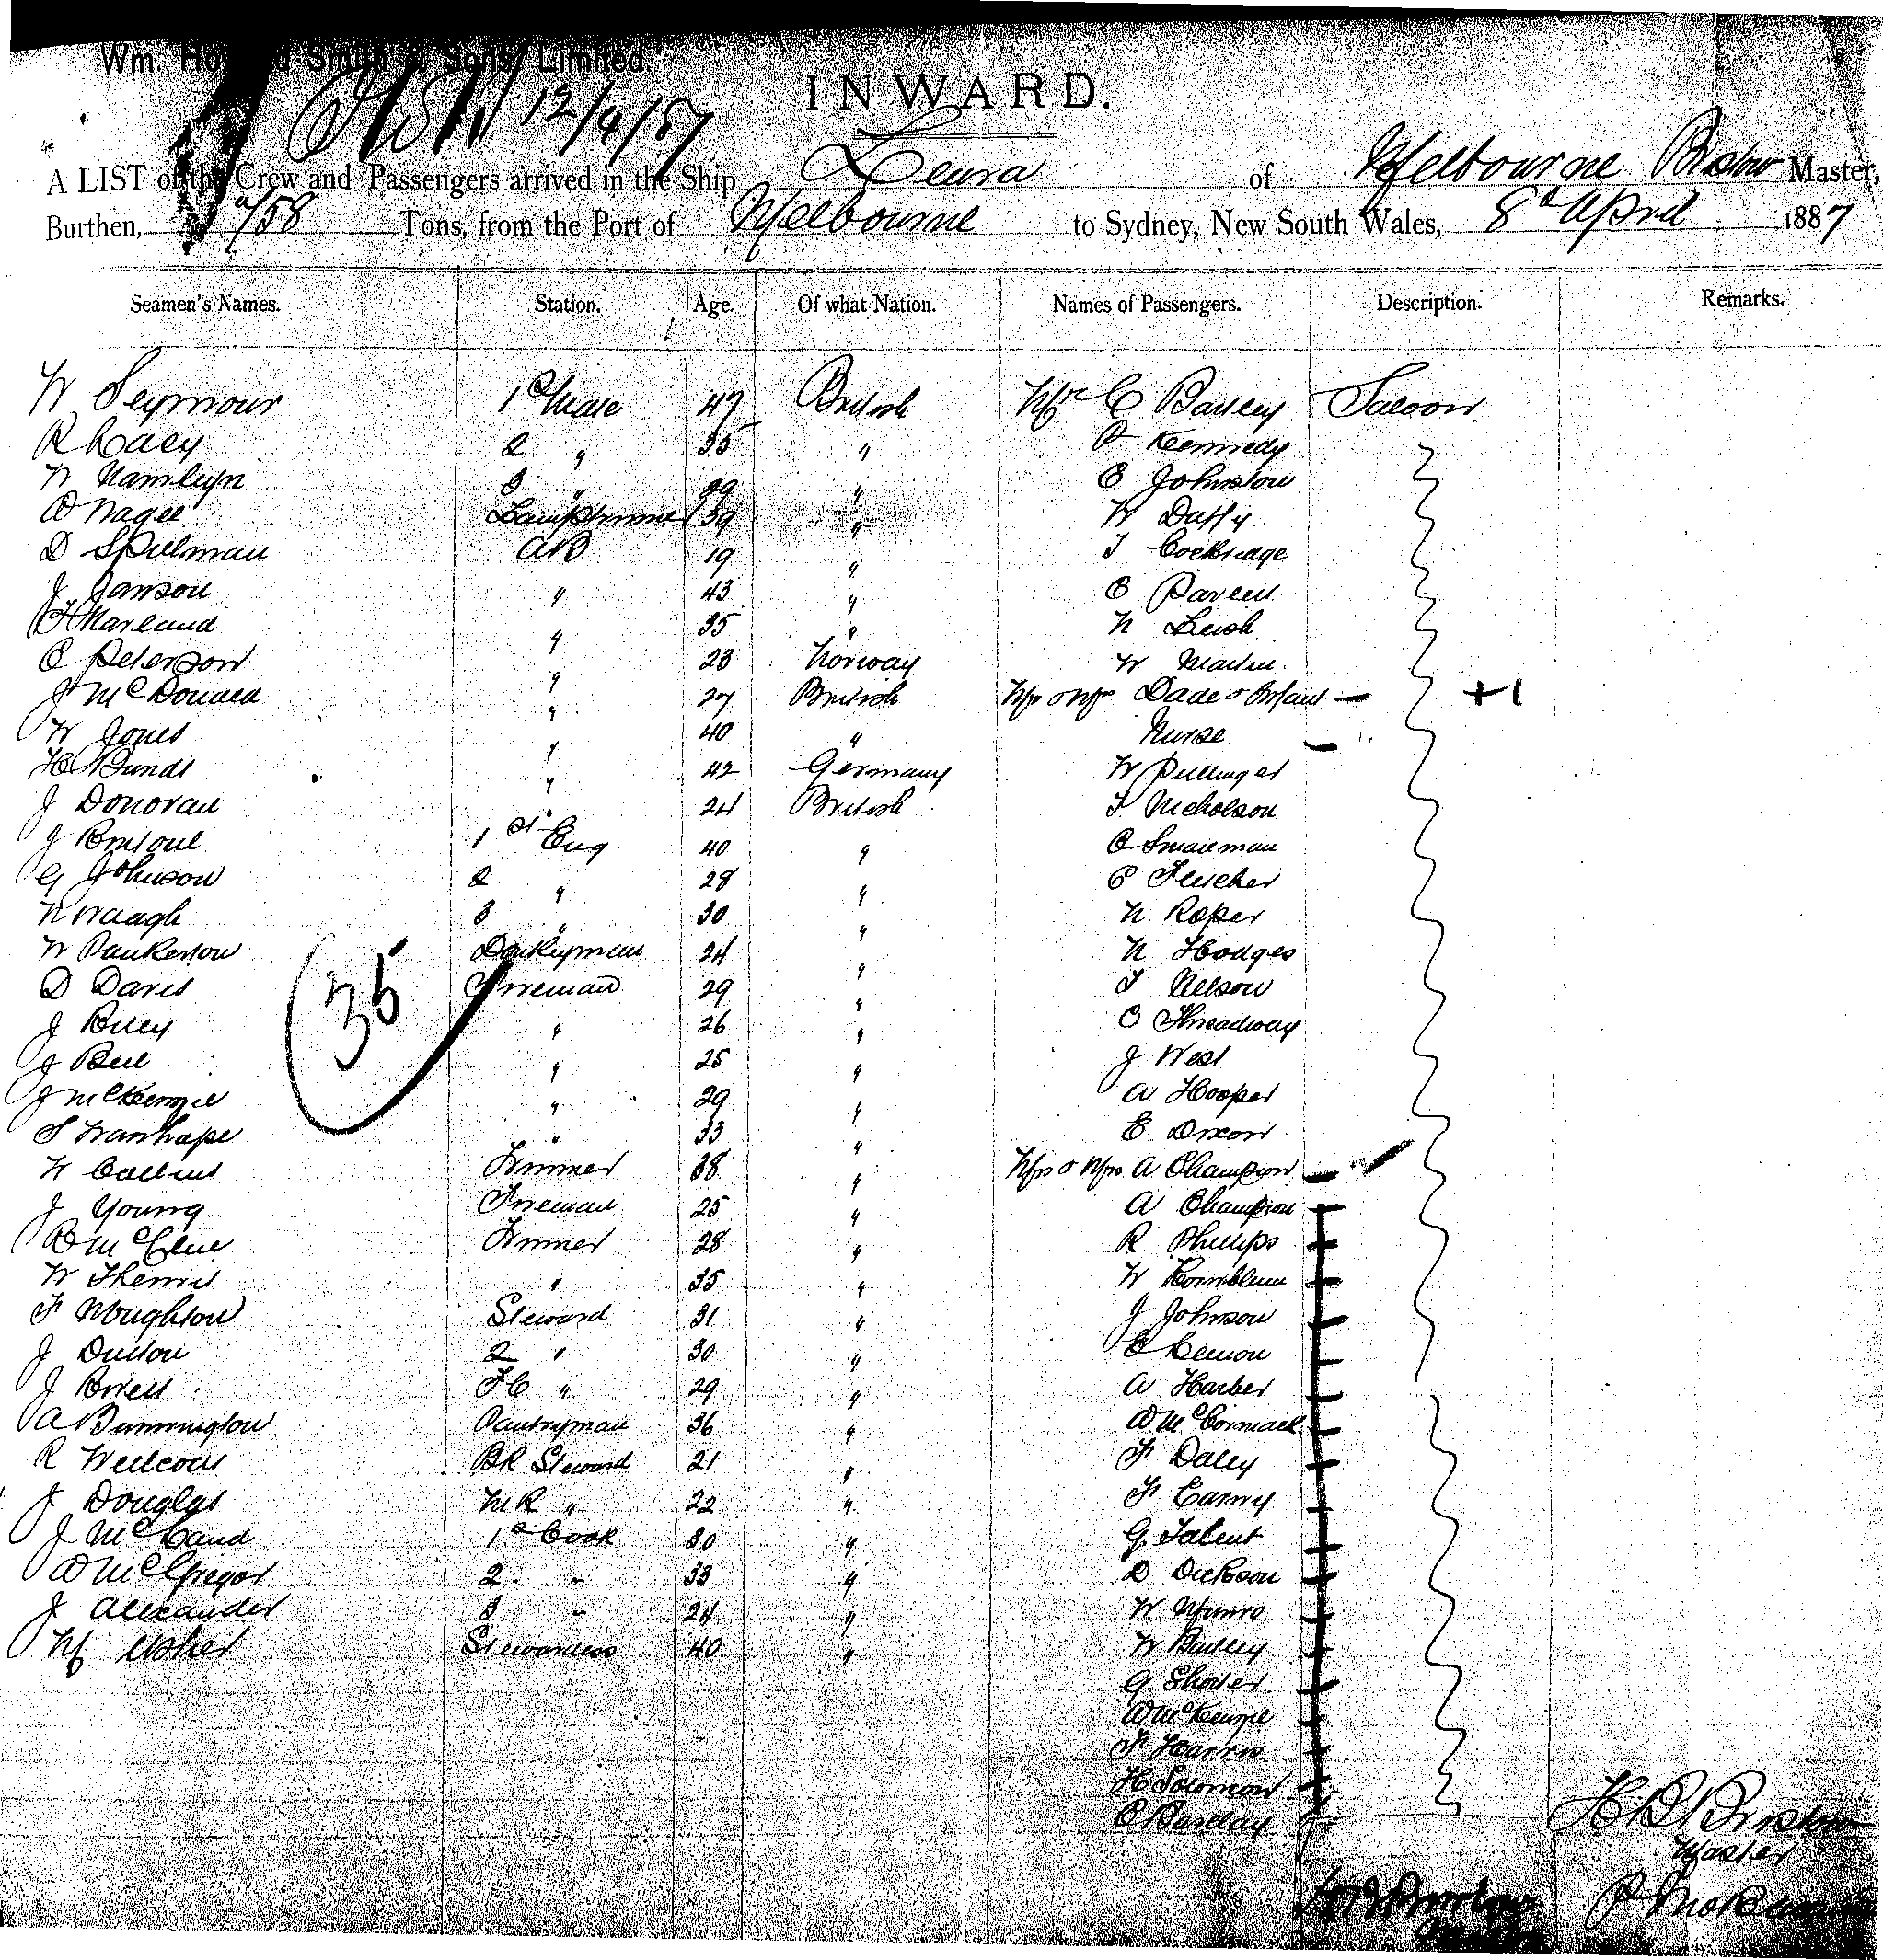 Wm. Howard Smith & Sons, Limited.
12/4/87
INWARD.
A LIST of the Crew and Passengers arrived in the Ship Leura of Melbourne Bristow Master,
Burthen, Tons, from the Port of Melbourne to Sydney, New South Wales, 8th April 1887
Seamen's Names. Station. Age. Of what Nation. Names of Passengers. Description. Remarks.
W Seymour 1st Mate 47 British Mr C Bailey Saloon
R Lacy 2 " 35 " P Kennedy
W Hamlyn 3 " 29 " E Johnston
D Nagee Lamptrimmer 39 " W Duffy
D Spilman AB 19 " T Cockbridge
J Janson " 43 " C
H Marland " 35 " N Leish
C Peterson " 23 Norway W Martin
J McDonald " 27 British Mr & Mrs Dade & Infant +1
W Jones " 40 " Nurse
H Bundt " 42 Germany W Pullinger
J Donovan " 24 British T Nicholson
J 1st Eng 40 " C Smallman
G Johnson 2 " 28 " P Fletcher
N Waugh 3 " 30 " N Roper
W Pankerton Donkeyman 24 " N Hodges
D Davis Fireman 29 " T Nelson
35
J " 26 " C Threadway
J Bell " 25 " J West
J McKenzie " 29 " A Hooper
S " 33 " E Dixon
W Collins Trimmer 38 " Mr & Mrs A Champion
J Young Fireman 25 " A Champion
R McClue Trimmer 28 " R Phillips
W " 35 " W Kornblum
F Noughton Steward 31 " J Johnson
J Duston 2 " 30 " C Lemon
J FC " 29 " A Harber
A Bunnington Pantryman 36 " D McCormack
R Wellcoat BR Steward 21 " F Daley
J Douglas MR " 22 " F Carny
J McCaud 1st Cook 30 " G Talent
D McGregor 2 " 33 " D Dickson
J Alexander 3 " 24 " W Munro
M Usher Stewardess 40 " W Bailey
G Shorter
D McKenzie
F Harris
H Solomon
C Barclay
H B Bristow
Master